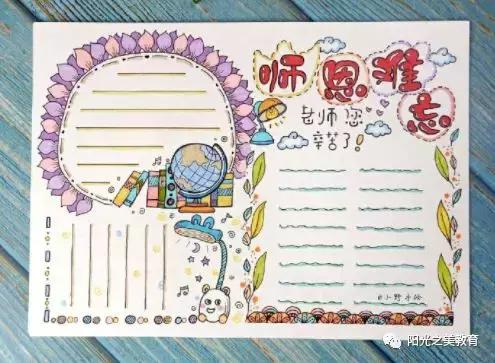 师恩难忘
老师您
辛苦了!
阳光之美教育